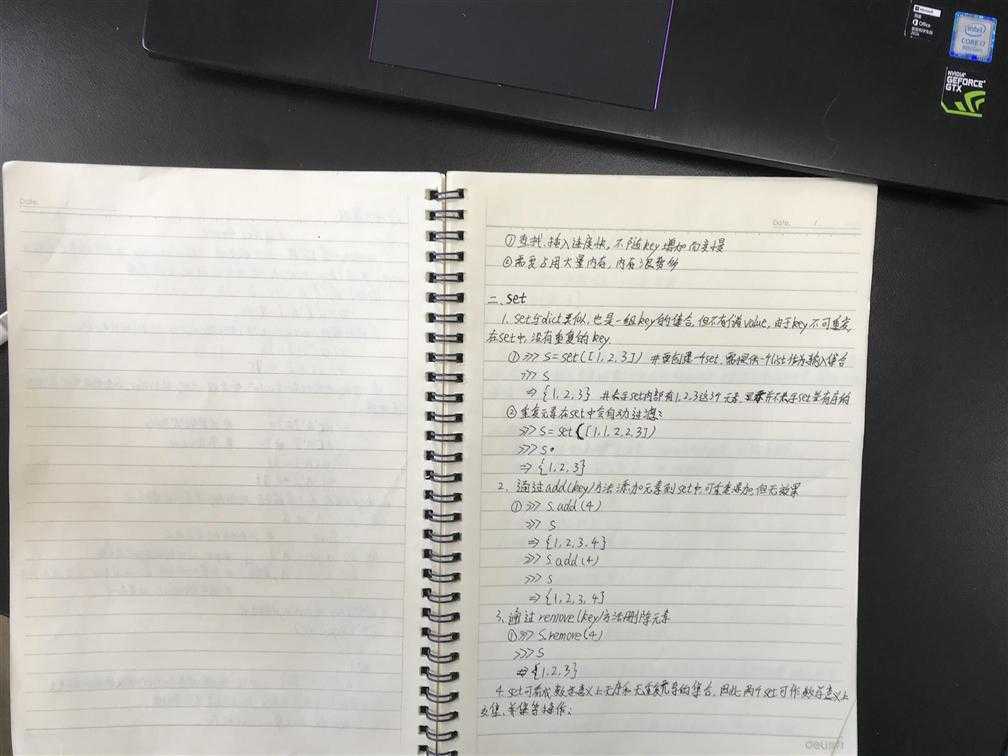 Microsoft
Office
intel
CORE i7
NVIDIA
GEFORCE
GTX
Date.
Date. /
① 查找、插入速度快,不随key增加而变慢
② 需要占用大量内存,内存浪费多
二、set
1. set与dict类似,也是一组key的集合,但不存储value,由于key不可重复,
在set中,没有重复的key.
① >>> s = set([1, 2, 3]) #要创建一个set,需提供一个list作为输入集合
>>> s
⇒ {1, 2, 3} #表示set内部有1,2,3这3个元素,并不表示set是有序的
② 重复元素在set中会自动过滤:
>>> s = set([1, 1, 2, 2, 3])
>>> s
⇒ {1, 2, 3}
2. 通过add(key)方法添加元素到set中,可重复添加,但无效果
① >>> s.add(4)
>>> s
⇒ {1, 2, 3, 4}
>>> s.add(4)
>>> s
⇒ {1, 2, 3, 4}
3. 通过remove(key)方法删除元素
① >>> s.remove(4)
>>> s
⇒ {1, 2, 3}
4. set可看成数学意义上无序和无重复元素的集合,因此,两个set可作数学意义上
交集、并集等操作:
deli